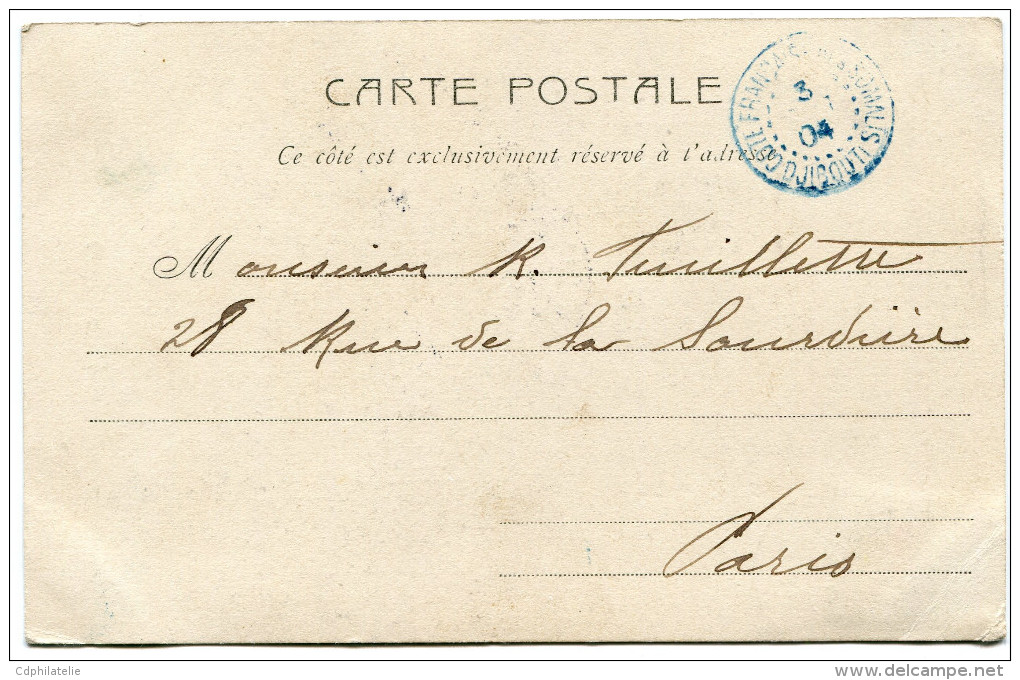 CARTE POSTALE
Ce côté est exclusivement réservé à l'adresse
CÔTE FRANÇAISE DES SOMALIS
3
04
DJIBOUTI
Monsieur R. Feuillette
28 Rue de la Sourdière
Paris
Cdphilatelie
www.delcampe.net